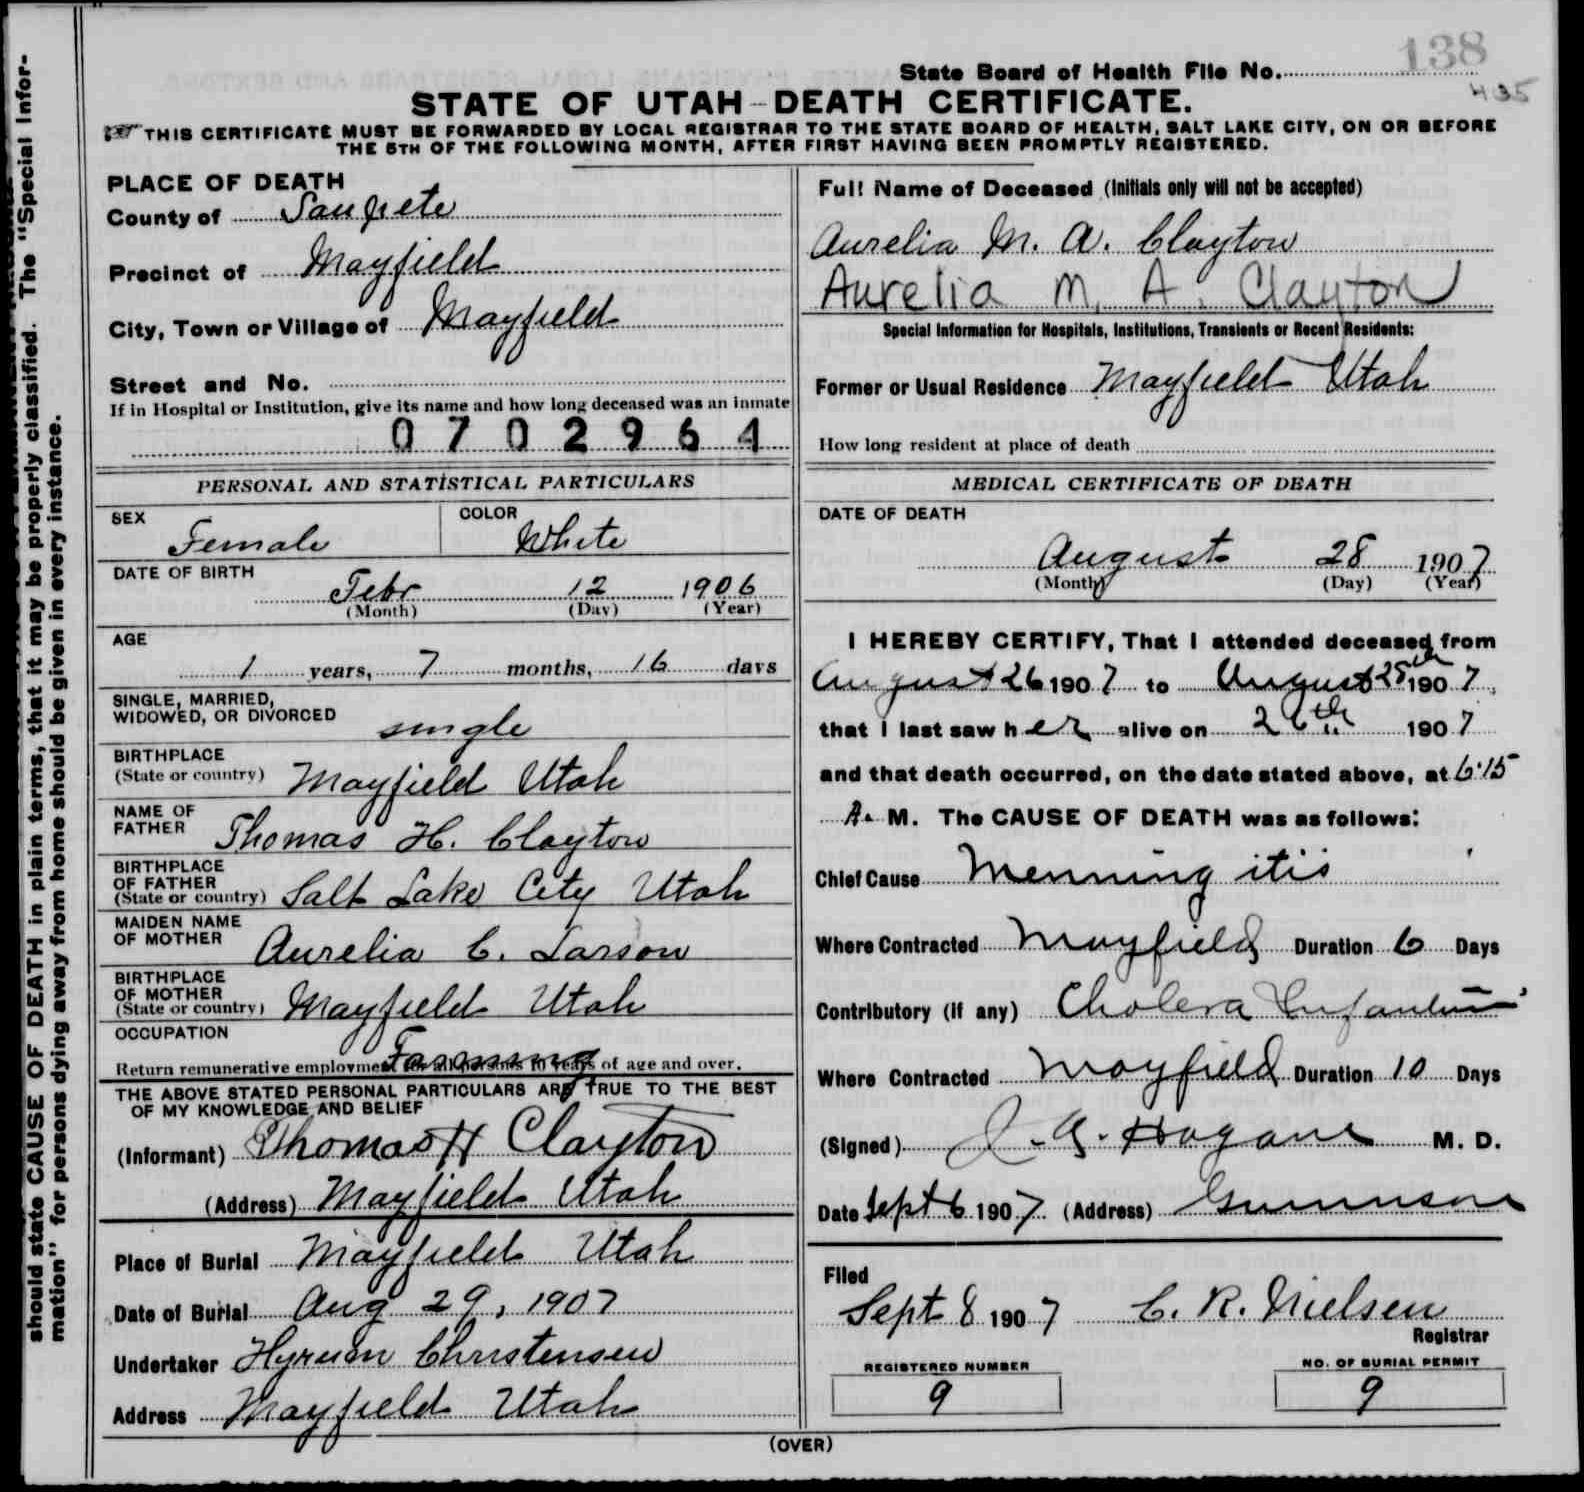 138
State Board of Health File No.
435
STATE OF UTAH - DEATH CERTIFICATE.
THIS CERTIFICATE MUST BE FORWARDED BY LOCAL REGISTRAR TO THE STATE BOARD OF HEALTH, SALT LAKE CITY, ON OR BEFORE
THE 5TH OF THE FOLLOWING MONTH, AFTER FIRST HAVING BEEN PROMPTLY REGISTERED.
should state CAUSE OF DEATH in plain terms, that it may be properly classified. The "Special Infor-
mation" for persons dying away from home should be given in every instance.
PLACE OF DEATH
County of Sanpete
Precinct of Mayfield
City, Town or Village of Mayfield
Street and No.
If in Hospital or Institution, give its name and how long deceased was an inmate
0702964
PERSONAL AND STATISTICAL PARTICULARS
SEX Female COLOR White
DATE OF BIRTH
Febr 12 1906
(Month) (Day) (Year)
AGE
1 years, 7 months, 16 days
SINGLE, MARRIED,
WIDOWED, OR DIVORCED single
BIRTHPLACE
(State or country) Mayfield Utah
NAME OF
FATHER Thomas H. Clayton
BIRTHPLACE
OF FATHER
(State or country) Salt Lake City Utah
MAIDEN NAME
OF MOTHER Aurelia C. Larson
BIRTHPLACE
OF MOTHER
(State or country) Mayfield Utah
OCCUPATION
Farming
Return remunerative employment for all persons 10 years of age and over.
THE ABOVE STATED PERSONAL PARTICULARS ARE TRUE TO THE BEST
OF MY KNOWLEDGE AND BELIEF
(Informant) Thomas H Clayton
(Address) Mayfield Utah
Place of Burial Mayfield Utah
Date of Burial Aug 29, 1907
Undertaker Hyrum Christensen
Address Mayfield Utah
Full Name of Deceased (Initials only will not be accepted)
Aurelia M. A. Clayton
Aurelia M. A. Clayton
Special Information for Hospitals, Institutions, Transients or Recent Residents:
Former or Usual Residence Mayfield Utah
How long resident at place of death
MEDICAL CERTIFICATE OF DEATH
DATE OF DEATH
August 28 1907
(Month) (Day) (Year)
I HEREBY CERTIFY, That I attended deceased from
August 26 1907 to August 28th 1907,
that I last saw her alive on 26th 1907
and that death occurred, on the date stated above, at 6:15
A. M. The CAUSE OF DEATH was as follows:
Chief Cause Menningitis
Where Contracted Mayfield Duration 6 Days
Contributory (if any) Cholera Infantum
Where Contracted Mayfield Duration 10 Days
(Signed) Hagan M. D.
Date Sept 6 1907 (Address) Gunnison
Filed
Sept 8 1907 C. R. Nielsen
Registrar
REGISTERED NUMBER
9
NO. OF BURIAL PERMIT
9
(OVER)